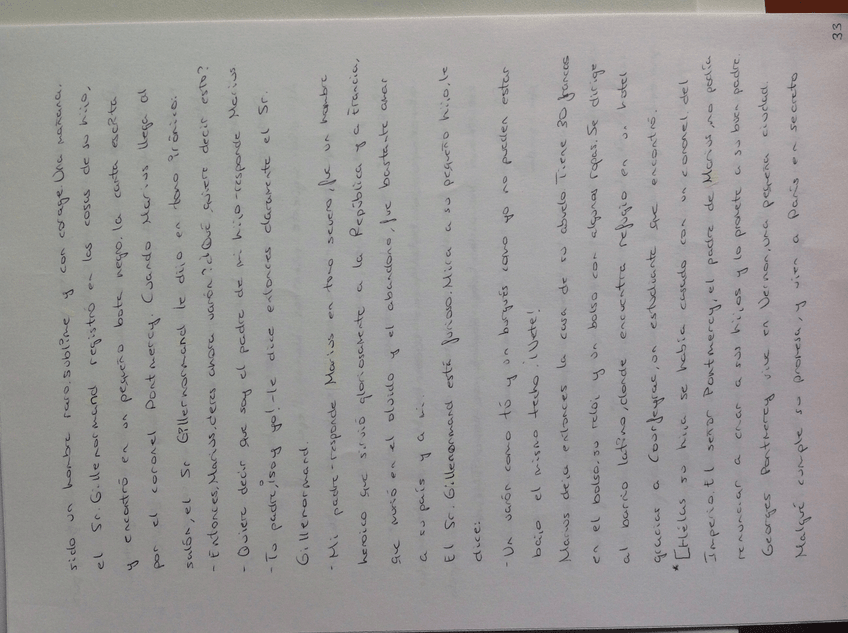 33
sido un hombre raro, sublime y con corage. Una mañana,
el Sr. Gillenormand registró en las cosas de su hijo,
y encontró en un pequeño bote negro, la carta escrita
por el coronel Pontmercy. Cuando Marius llega al
salón, el Sr. Gillernormand le dijo en tono irónico.
- Entonces, Marius, ¿eres ahora varón? ¿Qué quiere decir esto?
- Quiere decir que soy el padre de mi hijo - responde Marius
- Tu padre, ¡soy yo! - le dice entonces claramente el Sr.
Gillenormand.
- Mi padre - responde Marius en tono severo, fue un hombre
heroico que sirvió gloriosamente a la República y a Francia,
que murió en el olvido y el abandono, fue bastante amar
a su país y a mi.
El Sr. Gillenormand está furioso. Mira a su pequeño hijo, le
dice:
- Un varón como tú y un burgués como yo no pueden estar
bajo el mismo techo. ¡Vete!
Marius deja entonces la casa de su abuelo. Tiene 30 francos
en el bolso, su reloj y un bolso con algunas ropas. Se dirige
al barrio latino, donde encuentra refugio en un hotel
gracias a Courfeyrac, un estudiante que encontró.
* [Hélas su hija se había casado con un coronel del
Imperio. El señor Pontmercy, el padre de Marius, no podía
renunciar a criar a sus hijos y lo promete a su buen padre.
Georges Pontmercy vive en Vernon, una pequeña ciudad.
Malgré cumple su promesa, y vien a París en secreto